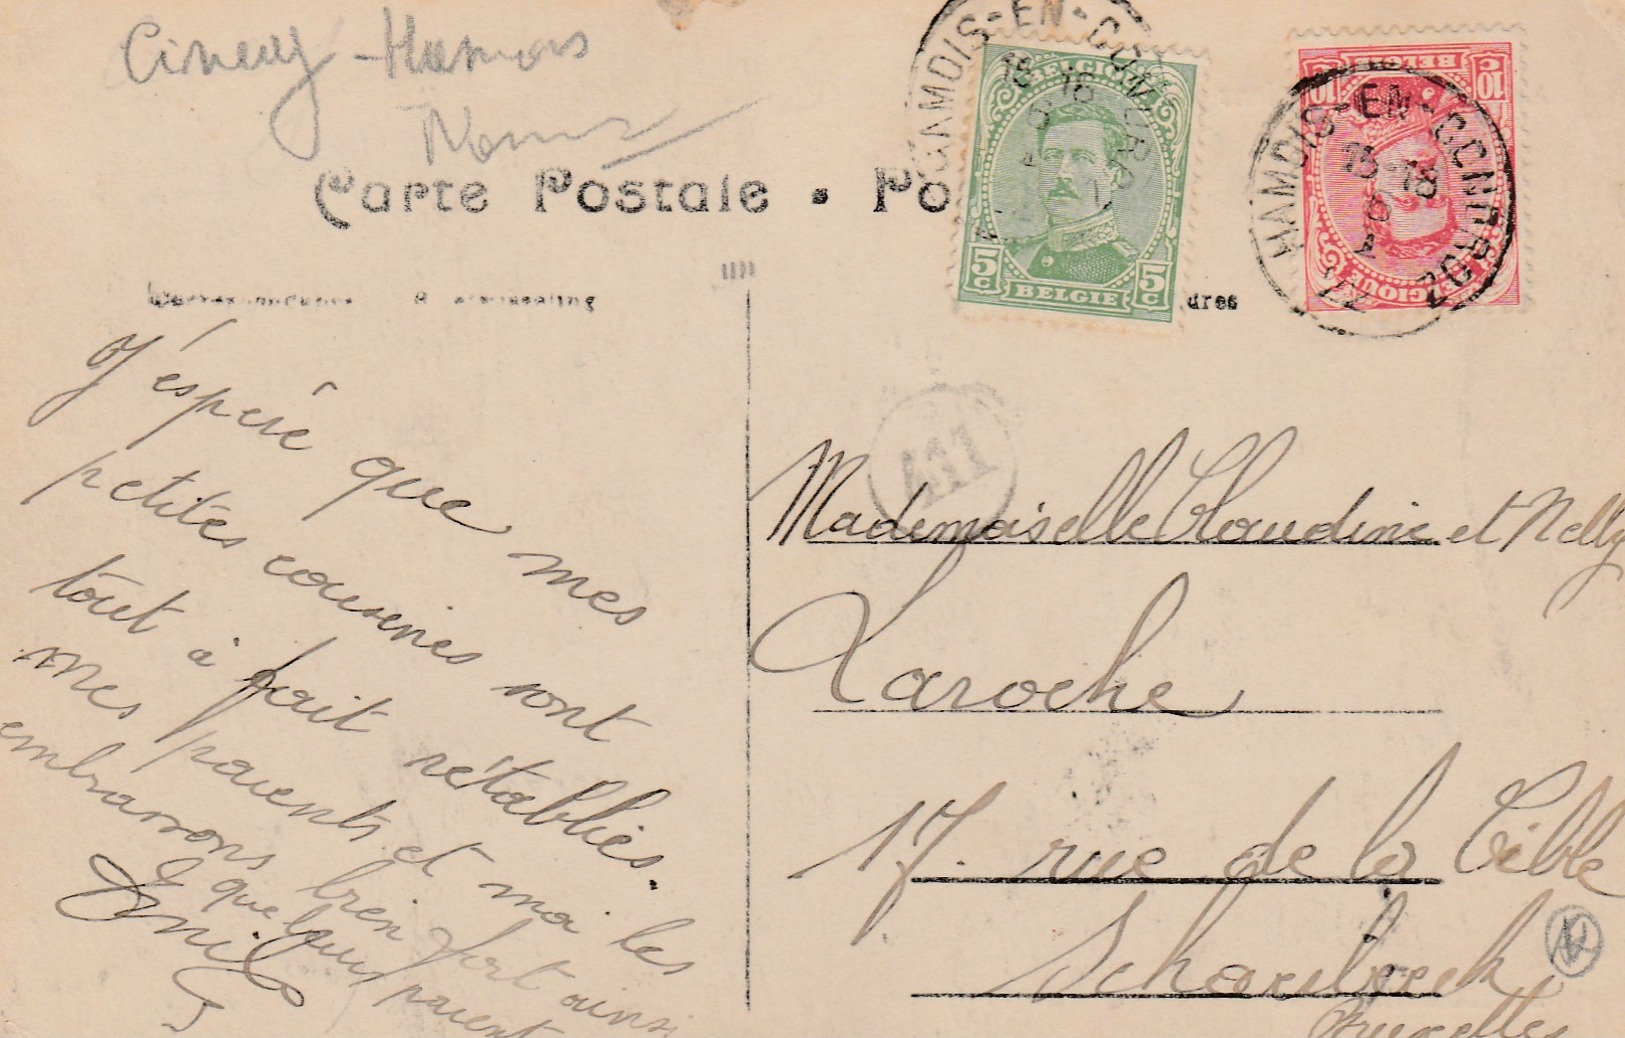 Ciney - Hamois
Namur
Carte Postale • Po
dres
J'espère que mes
petites cousines sont
tout à fait rétablies.
mes parents et moi les
embrassons bien fort ainsi
que leurs parents
Emile
Mademoiselle Claudine et Nelly
Laroche
17. rue de la Cible
Schaerbeek
Bruxelles
HAMOIS-EN-CONDROZ
15-16
BELGIQUE
5c 5c
BELGIE
HAMOIS-EN-CONDROZ
15-16
10c BELGIË 10c
BELGIQUE
411